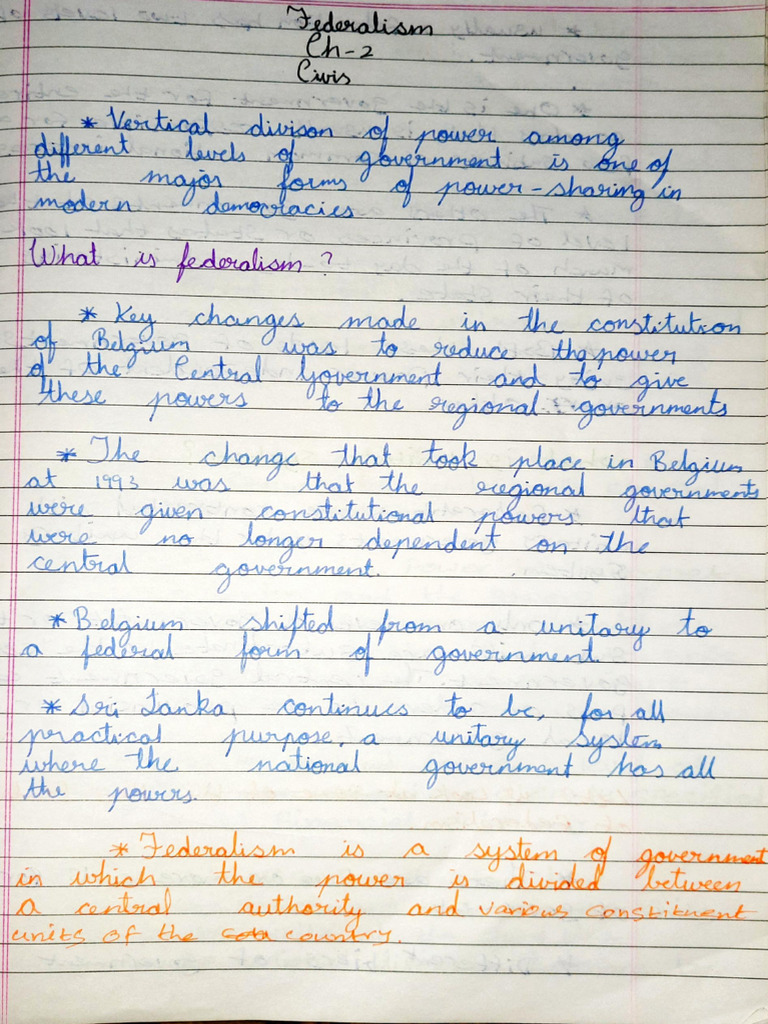 Federalism
Ch-2
Civis
* Vertical divison of power among
different levels of government is one of
the major forms of power-sharing in
modern democracies
What is federalism ?
* Key changes made in the constitution
of Belgium was to reduce the power
of the Central Government and to give
these powers to the regional governments
* The change that took place in Belgium
at 1993 was that the regional governments
were given constitutional powers that
were no longer dependent on the
central government.
* Belgium shifted from a unitary to
a federal form of government.
* Sri Lanka continues to be, for all
practical purpose, a unitary system
where the national government has all
the powers.
* Federalism is a system of government
in which the power is divided between
a central authority and various constituent
units of the country.